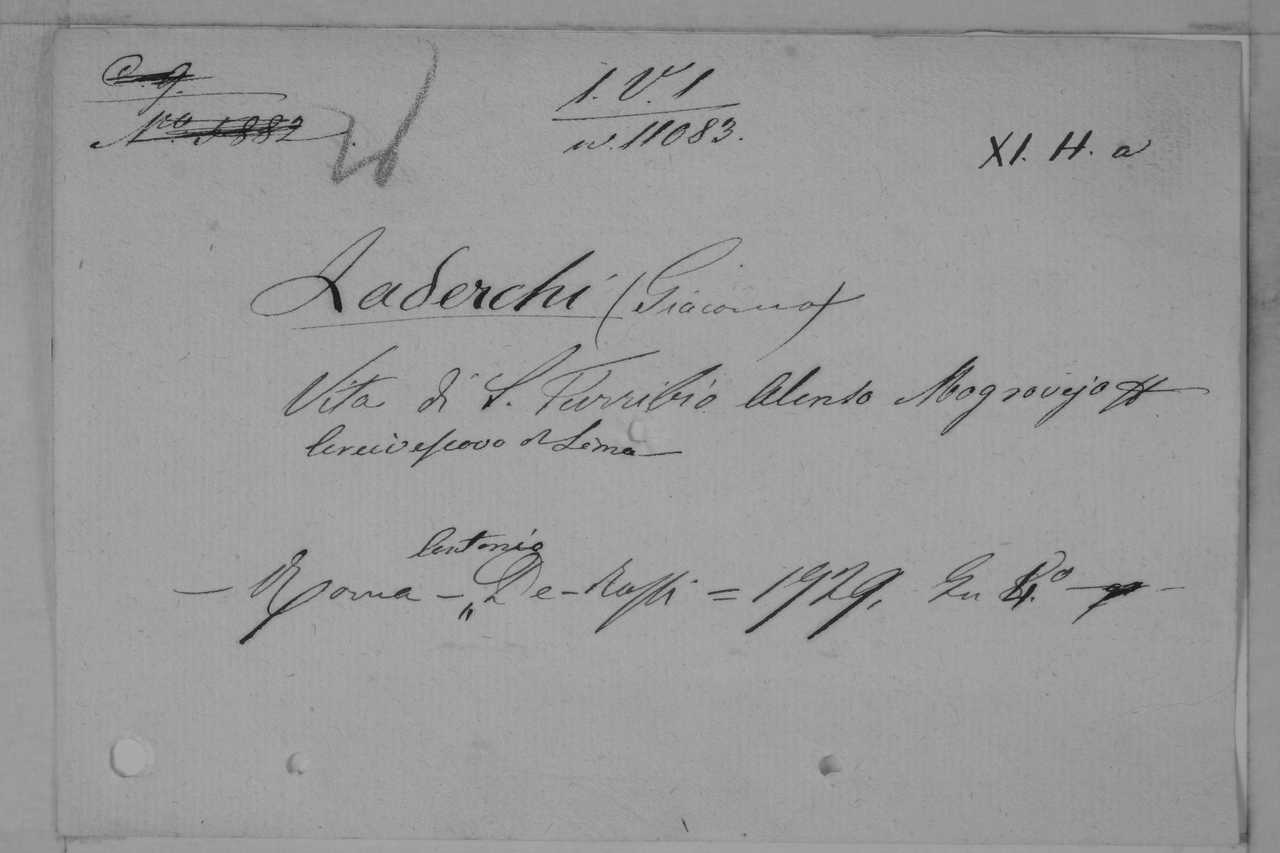 C. g.
N.ro 5882.
1. V. 1
n. 11083.
XI. H. a
Laderchi (Giacomo)
Vita di S. Turribio Alonso Mogrovejo
Arcivescovo di Lima
— Roma — Antonio De-Rossi = 1729. In 4.°